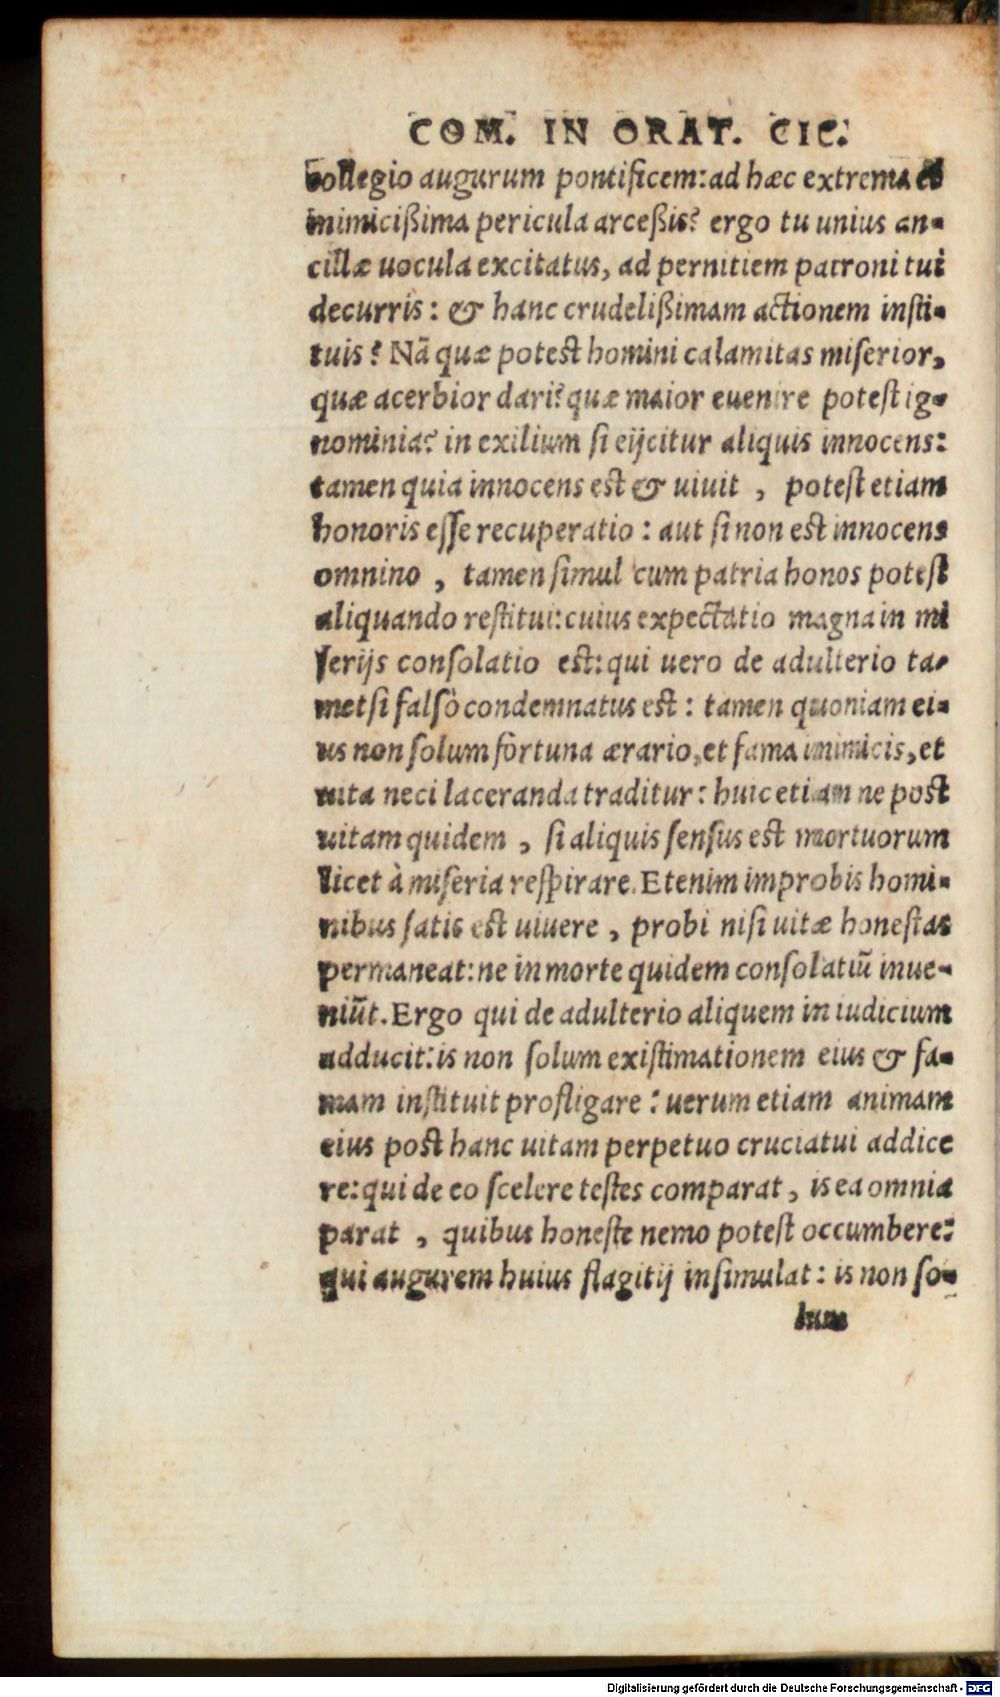 COM. IN ORAT. CIC.
collegio augurum pontificem: ad hæc extrema et
inimicißima pericula arceßis? ergo tu unius an-
cillæ uocula excitatus, ad pernitiem patroni tui
decurris: & hanc crudelißimam actionem insti-
tuis? Nã quæ potest homini calamitas miserior,
quæ acerbior dari? quæ maior euenire potest ig-
nominia? in exilium si eijcitur aliquis innocens:
tamen quia innocens est & uiuit, potest etiam
honoris esse recuperatio: aut si non est innocens
omnino, tamen simul cum patria honos potest
aliquando restitui: cuius expectatio magna in mi
serijs consolatio est: qui uero de adulterio ta-
metsi falsò condemnatus est: tamen quoniam ei-
us non solum fortuna ærario, et fama inimicis, et
uita neci laceranda traditur: huic etiam ne post
uitam quidem, si aliquis sensus est mortuorum
licet à miseria respirare. Etenim improbis homi-
nibus satis est uiuere, probi nisi uitæ honestas
permaneat: ne in morte quidem consolatiũ inue-
niũt. Ergo qui de adulterio aliquem in iudicium
adducit: is non solum existimationem eius & fa-
mam instituit profligare: uerum etiam animam
eius post hanc uitam perpetuo cruciatui addice
re: qui de eo scelere testes comparat, is ea omnia
parat, quibus honeste nemo potest occumbere:
qui augurem huius flagitij insimulat: is non so-
lum
Digitalisierung gefördert durch die Deutsche Forschungsgemeinschaft - DFG